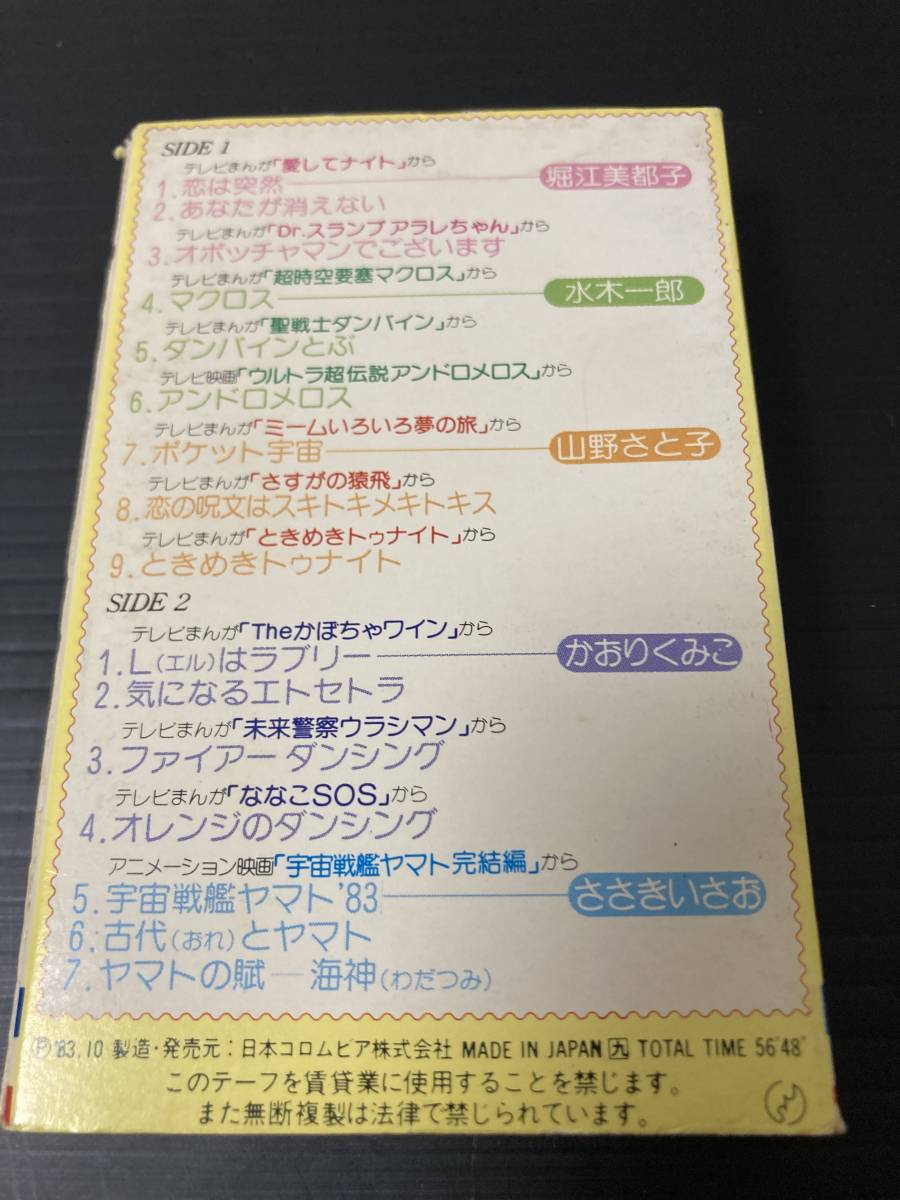 SIDE 1
テレビまんが「愛してナイト」から
1.恋は突然 堀江美都子
2.あなたが消えない
テレビまんが「Dr.スランプ アラレちゃん」から
3.オボッチャマンでございます
テレビまんが「超時空要塞マクロス」から
4.マクロス 水木一郎
テレビまんが「聖戦士ダンバイン」から
5.ダンバインとぶ
テレビ映画「ウルトラ超伝説アンドロメロス」から
6.アンドロメロス
テレビまんが「ミームいろいろ夢の旅」から
7.ポケット宇宙 山野さと子
テレビまんが「さすがの猿飛」から
8.恋の呪文はスキトキメキトキス
テレビまんが「ときめきトゥナイト」から
9.ときめきトゥナイト
SIDE 2
テレビまんが「Theかぼちゃワイン」から
1.L(エル)はラブリー かおりくみこ
2.気になるエトセトラ
テレビまんが「未来警察ウラシマン」から
3.ファイアー ダンシング
テレビまんが「ななこSOS」から
4.オレンジのダンシング
アニメーション映画「宇宙戦艦ヤマト完結編」から
5.宇宙戦艦ヤマト'83 ささきいさお
6.古代(おれ)とヤマト
7.ヤマトの賦―海神(わだつみ)
Ⓟ'83.10 製造・発売元:日本コロムビア株式会社 MADE IN JAPAN 九 TOTAL TIME 56'48"
このテープを賃貸業に使用することを禁じます。
また無断複製は法律で禁じられています。